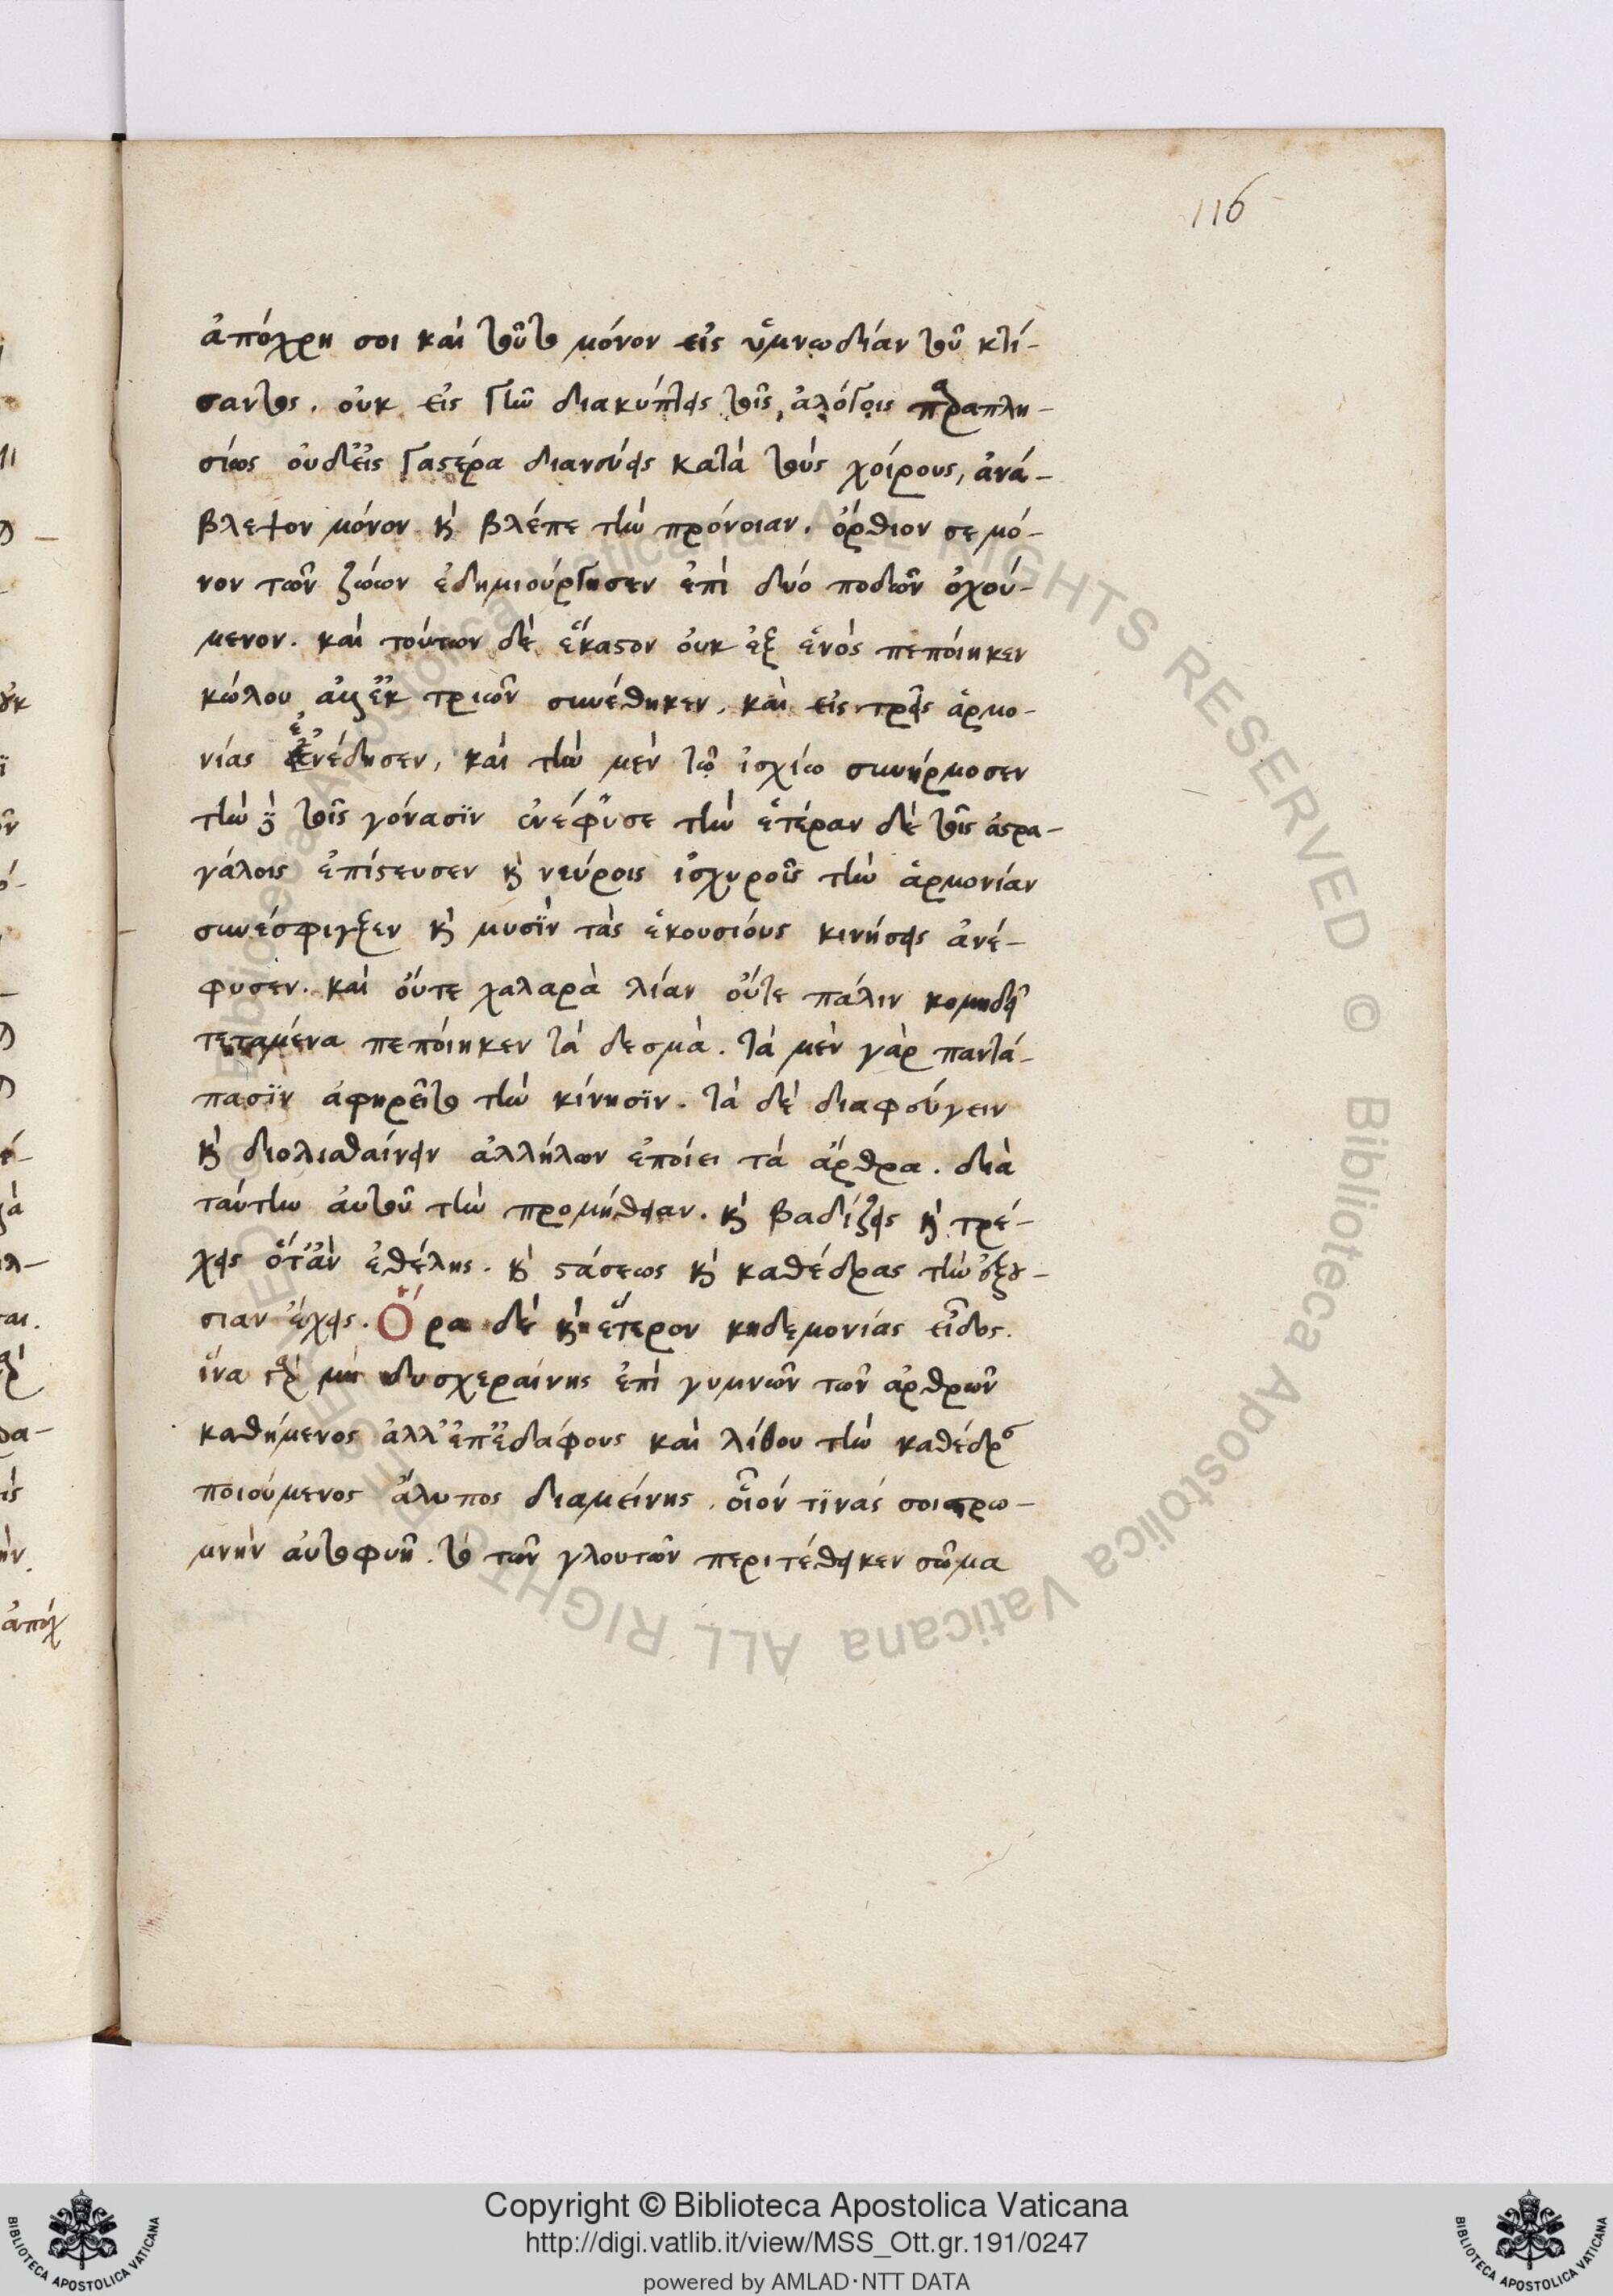 116
ἀπόχρη σοι καὶ τοῦτο μόνον εἰς ὑμνωδίαν τοῦ κτί-
σαντος. οὐκ εἰς γῆν διακύπτεις τοῖς ἀλόγοις παραπλη-
σίως οὐδεἰς γαστέρα διανεύεις κατὰ τοὺς χοίρους, ἀνά-
βλεψον μόνον κὶ βλέπε τὴν πρόνοιαν. ὄρθιον σε μό-
νον τῶν ζώων ἐδημιούργησεν ἐπὶ δυό ποδῶν ὀχού-
μενον. καὶ τούτων δὲ ἕκαστον οὐκ ἐξ ἑνὸς πεποίηκεν
κώλου ἀλλἐκ τριῶν συνέθηκεν, καὶ εἰς τρεῖς ἁρμο-
νίας ἐνέδησεν, καὶ τὴν μὲν τῷ ἰσχίω συνήρμοσεν
τὴν δὲ τοῖς γόνασϊν ἐνέφυσε τὴν ἑτέραν δὲ τοῖς ἀστρα-
γάλοις ἐπίστευσεν κὶ νεύροις ἰσχυροῖς τὴν ἁρμονίαν
συνέσφιγξεν κὶ μυσῒν τὰς ἑκουσίους κινήσεις ἀνέ-
φυσεν. καὶ οὔτε χαλαρὰ λίαν οὔτε πάλιν κομηδῆ
τεταμένα πεποίηκεν τὰ δεσμὰ. τὰ μὲν γὰρ παντά-
πασϊν ἀφηρεῖτο τὴν κίνησϊν. τὰ δὲ διαφεύγειν
κὶ διολισθαίνειν ἀλλήλων ἐποίει τὰ ἄρθρα. διὰ
ταύτην αὐτοῦ τὴν προμήθειαν. κὶ βαδίζεις κὶ τρέ-
χεις ὅτἂν ἐθέλης. κὶ στάσεως κὶ καθέδρας τὴν ἐξου-
σιαν ἔχεις. Ὅρα δὲ κὶ ἕτερον κηδεμονίας εἶδος.
ἵνα γὰρ μὴ δυσχεραίνης ἐπὶ γυμνῶν τῶν ἀρθρῶν
καθήμενος ἀλλἐπἐδάφους καὶ λίθου τὴν καθέδραν
ποιούμενος ἄλυπος διαμείνης. οἷόν τϊνάς σοι στρω-
μνὴν αὐτοφυῆ. τὸ τῶν γλουτῶν περιτέθεικεν σῶμα
ἀπόχ
Copyright © Biblioteca Apostolica Vaticana
http://digi.vatlib.it/view/MSS_Ott.gr.191/0247
powered by AMLAD·NTT DATA
BIBLIOTECA APOSTOLICA VATICANA
BIBLIOTECA APOSTOLICA VATICANA